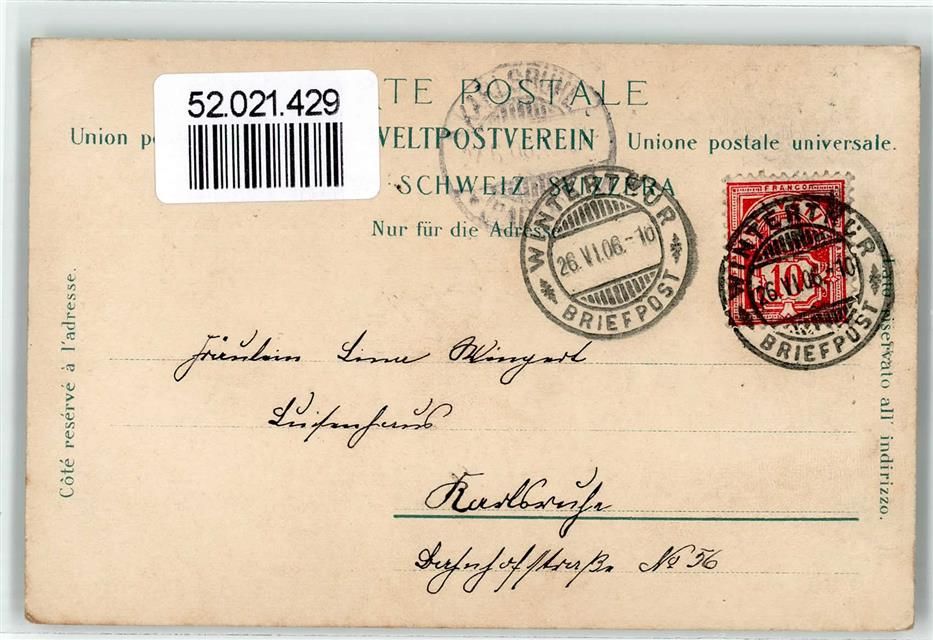 52.021.429
TE POSTALE
Union po WELTPOSTVEREIN Unione postale universale.
SCHWEIZ SVIZZERA
Nur für die Adresse
WINTERTHUR
26.VI.06.-10
BRIEFPOST
FRANCO
10
WINTERTHUR
26.VI.06.-10
BRIEFPOST
Côté resérvé à l'adresse.
Lato riservato all' indirizzo.
Fräulein Lina Wingert
Luisenhaus
Karlsruhe
Bahnhofstraße No 56